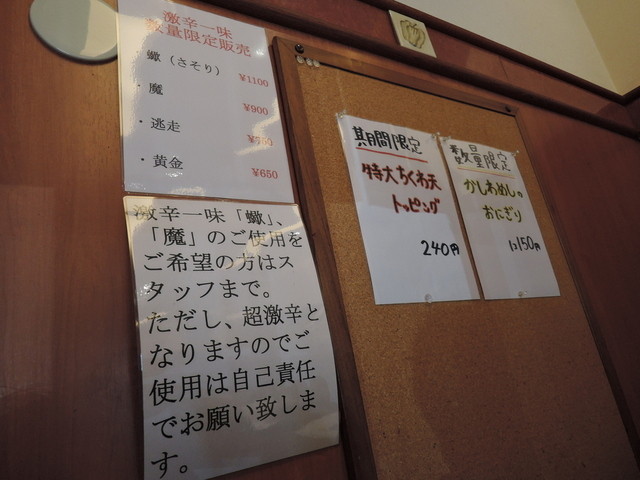 激辛一味
数量限定販売
・蠍（さそり）
¥1100
・魔
¥900
・逃走
・黄金
¥650
激辛一味「蠍」、
「魔」のご使用を
ご希望の方はス
タッフまで。
ただし、超激辛と
なりますのでご
使用は自己責任
でお願い致しま
す。
期間限定
特大ちくわ天
トッピング
240円
数量限定
かしわめしの
おにぎり
1コ150円